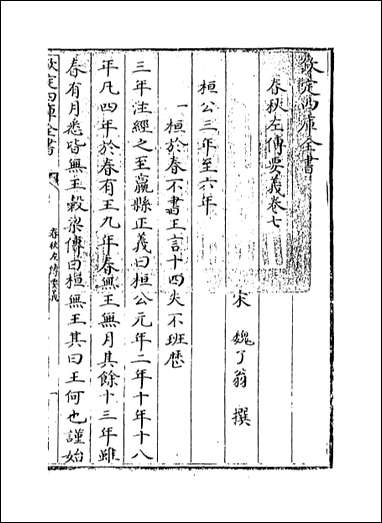 欽定四庫全書
春秋左傳要義卷七
宋 魏了翁 撰
桓公三年至六年
一桓於春不書王言十四失不班歷
三年注經之至嬴縣正義曰桓公元年二年十年十八
年凡四年於春有王九年春無王無月其餘十三年雖
春有月悉皆無王穀梁傳曰桓無王其曰王何也謹始
欽定四庫全書
春秋左傳要義
一